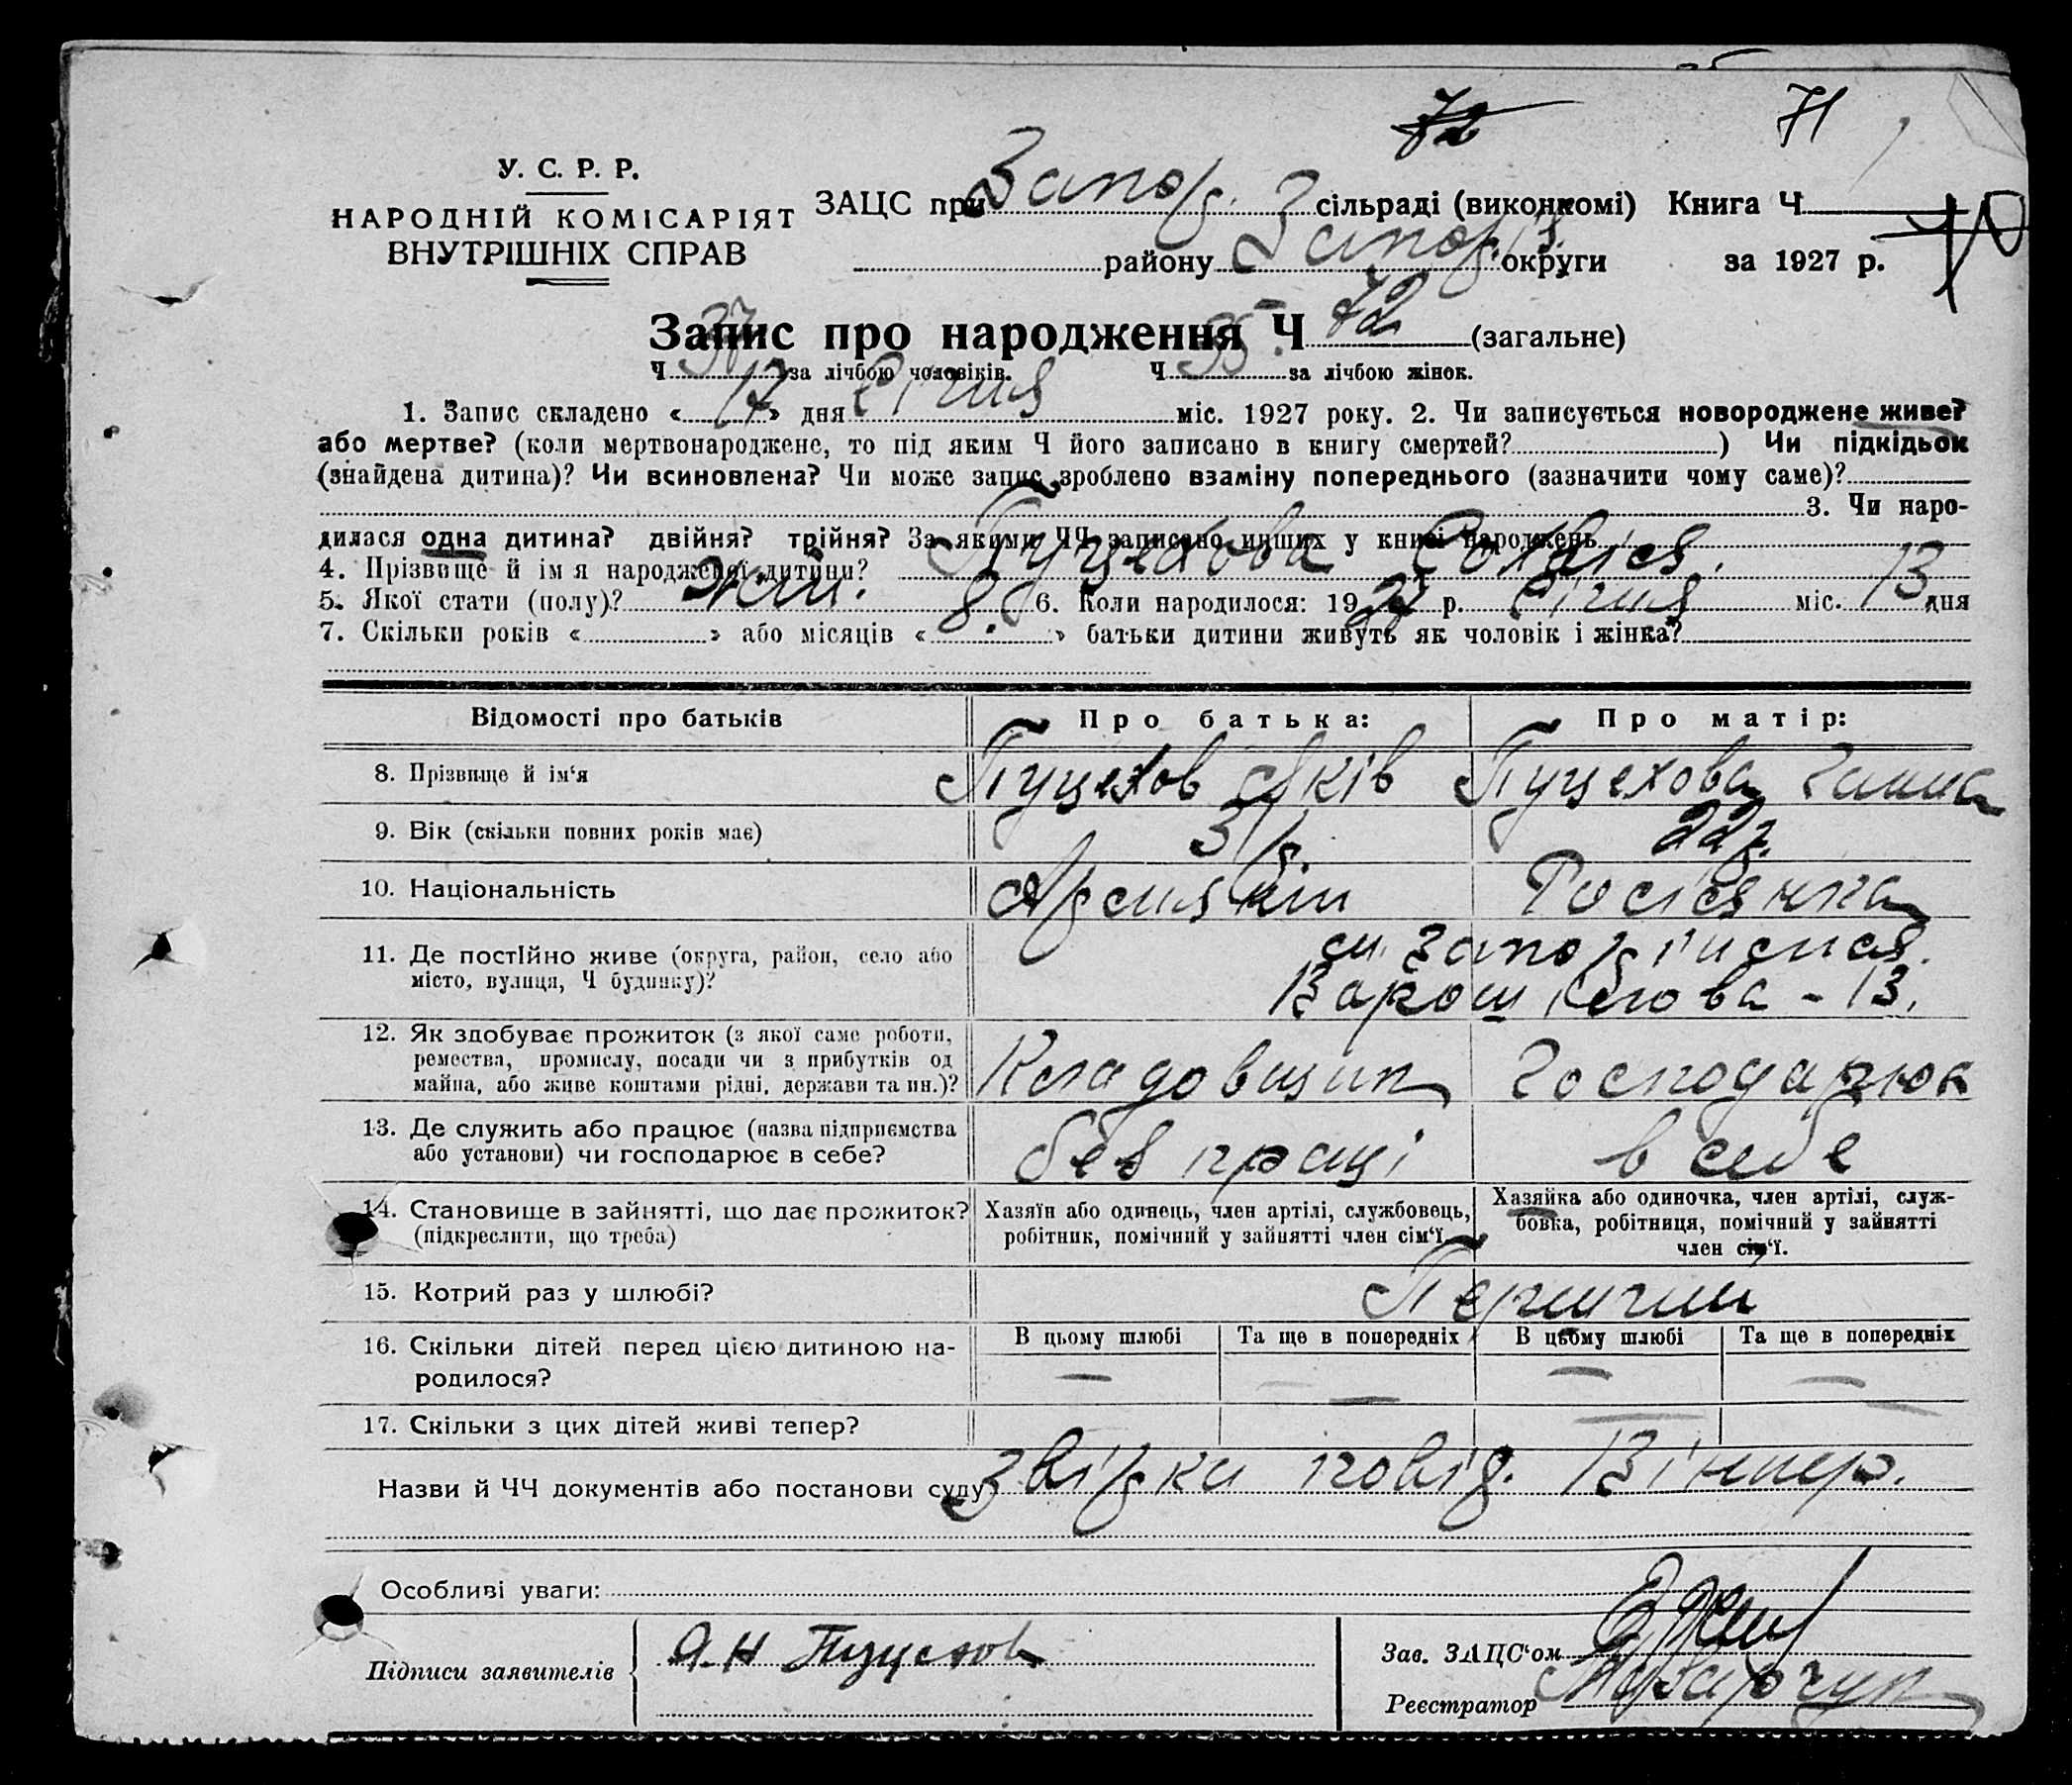 72 71
У. С. Р. Р.
НАРОДНІЙ КОМІСАРІЯТ
ВНУТРІШНІХ СПРАВ
ЗАЦС при Запор. сільраді (виконкомі) Книга Ч
району Запоріз. округи за 1927 р.
Запис про народження Ч 72 (загальне)
Ч 37 за лічбою чоловіків. Ч 35 за лічбою жінок.
1. Запис складено « 17 » дня Січня міс. 1927 року. 2. Чи записується новороджене живе?
або мертве? (коли мертвонароджене, то під яким Ч його записано в книгу смертей? ) Чи підкідьок
(знайдена дитина)? Чи всиновлена? Чи може запис зроблено взаміну попереднього (зазначити чому саме)?
3. Чи наро-
дилася одна дитина? двійня? трійня? За якими ЧЧ записано инших у книзі народжень
4. Прізвище й ім я народженої дитини? Пуцехова
5. Якої стати (полу)? Жін. 6. Коли народилося: 1927 р. Січня міс. 13 дня
7. Скільки років « » або місяців « 8. » батьки дитини живуть як чоловік і жінка?
Відомості про батьків Про батька: Про матір:
8. Прізвище й ім'я Пуцехов Яків Пуцехова Ганна
9. Вік (скільки повних років має) 31 р. 22 р.
10. Національність Росіянка
11. Де постійно живе (округа, район, село або
місто, вулиця, Ч будинку)?
м. Запоріжжя.
Ворошілова - 13.
12. Як здобуває прожиток (з якої саме роботи,
ремества, промислу, посади чи з прибутків од
майна, або живе коштами рідні, держави та ин.)?
Кладовщик Господарює
13. Де служить або працює (назва підприємства
або установи) чи господарює в себе?
без праці в себе
14. Становище в зайнятті, що дає прожиток?
(підкреслити, що треба)
Хазяїн або одинець, член артілі, службовець,
робітник, помічний у зайнятті член сім'ї.
Хазяйка або одиночка, член артілі, служ-
бовка, робітниця, помічний у зайнятті
член сім'ї.
15. Котрий раз у шлюбі? Першчий
16. Скільки дітей перед цією дитиною на-
родилося?
В цьому шлюбі Та ще в попередніх В цьому шлюбі Та ще в попередніх
— — — —
17. Скільки з цих дітей живі тепер? — — —
Назви й ЧЧ документів або постанови суду
Особливі уваги:
Підписи заявителів Я. Н Пуцехов
Зав. ЗАЦС'ом
Реєстратор